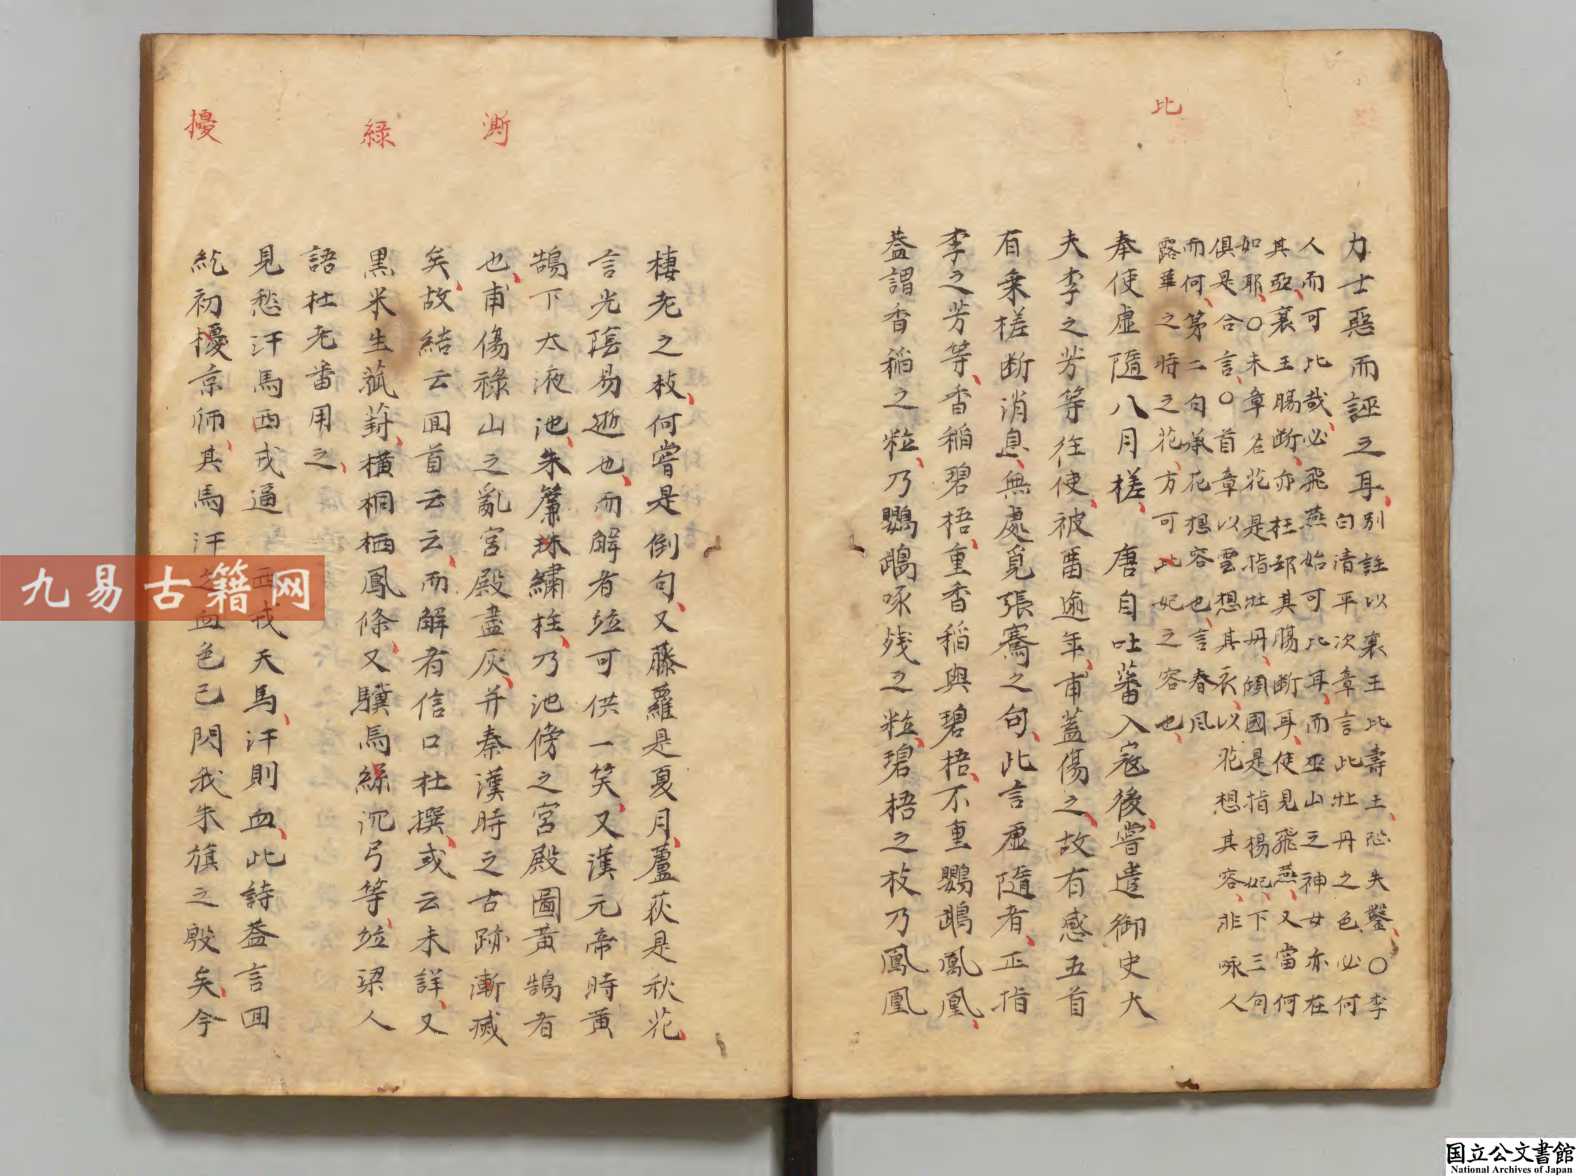 比
力士惡而誣之耳別註以襄王比壽王恐失鑿〇李
白清平次章言此牡丹之色必何
人而可比哉必飛燕始可比耳而巫山之神女亦在
其亞襄王賜斷亦枉却其腸斷耳使見飛燕又當何
如耶〇末章名花是指牡丹傾國是指楊妃下三句
俱是合言〇首章以雲想其衣以花想其容非咏人
而何第二句承花想容也言春風
露華之時之花方可比妃之容也
奉使虛隨八月槎 唐自吐蕃入寇後嘗遣御史大
夫李之芳等往使被畱逾年甫蓋傷之故有感五首
有乗槎断消息無處覓張騫之句此言虛隨者正指
李之芳等香稲碧梧重香稲與碧梧不重鸚鵡鳳凰
葢謂香稲之粒乃鸚鵡啄残之粒碧梧之枝乃鳳凰
漸
綠
擾
棲老之枝何嘗是倒句又藤蘿是夏月蘆荻是秋花
言光陰易逝也而解者竝可供一笑又漢元帝時黃
鵠下太液池朱簾珠繡柱乃池傍之宮殿圖黃鵠者
也甫傷祿山之亂宮殿盡灰并秦漢時之古跡漸滅
矣故結云囬首云云而解者信口杜撰或云未詳又
黒米生菰葑橫桐栖鳳條又驥馬綠沉弓等竝梁人
語杜老番用之
見愁汗馬西戎逼 西戎天馬汗則血此詩葢言囬
紇初擾京師其馬汗之血色已閃我朱旗之殷矣今
九易古籍网
国立公文書館
National Archives of Japan